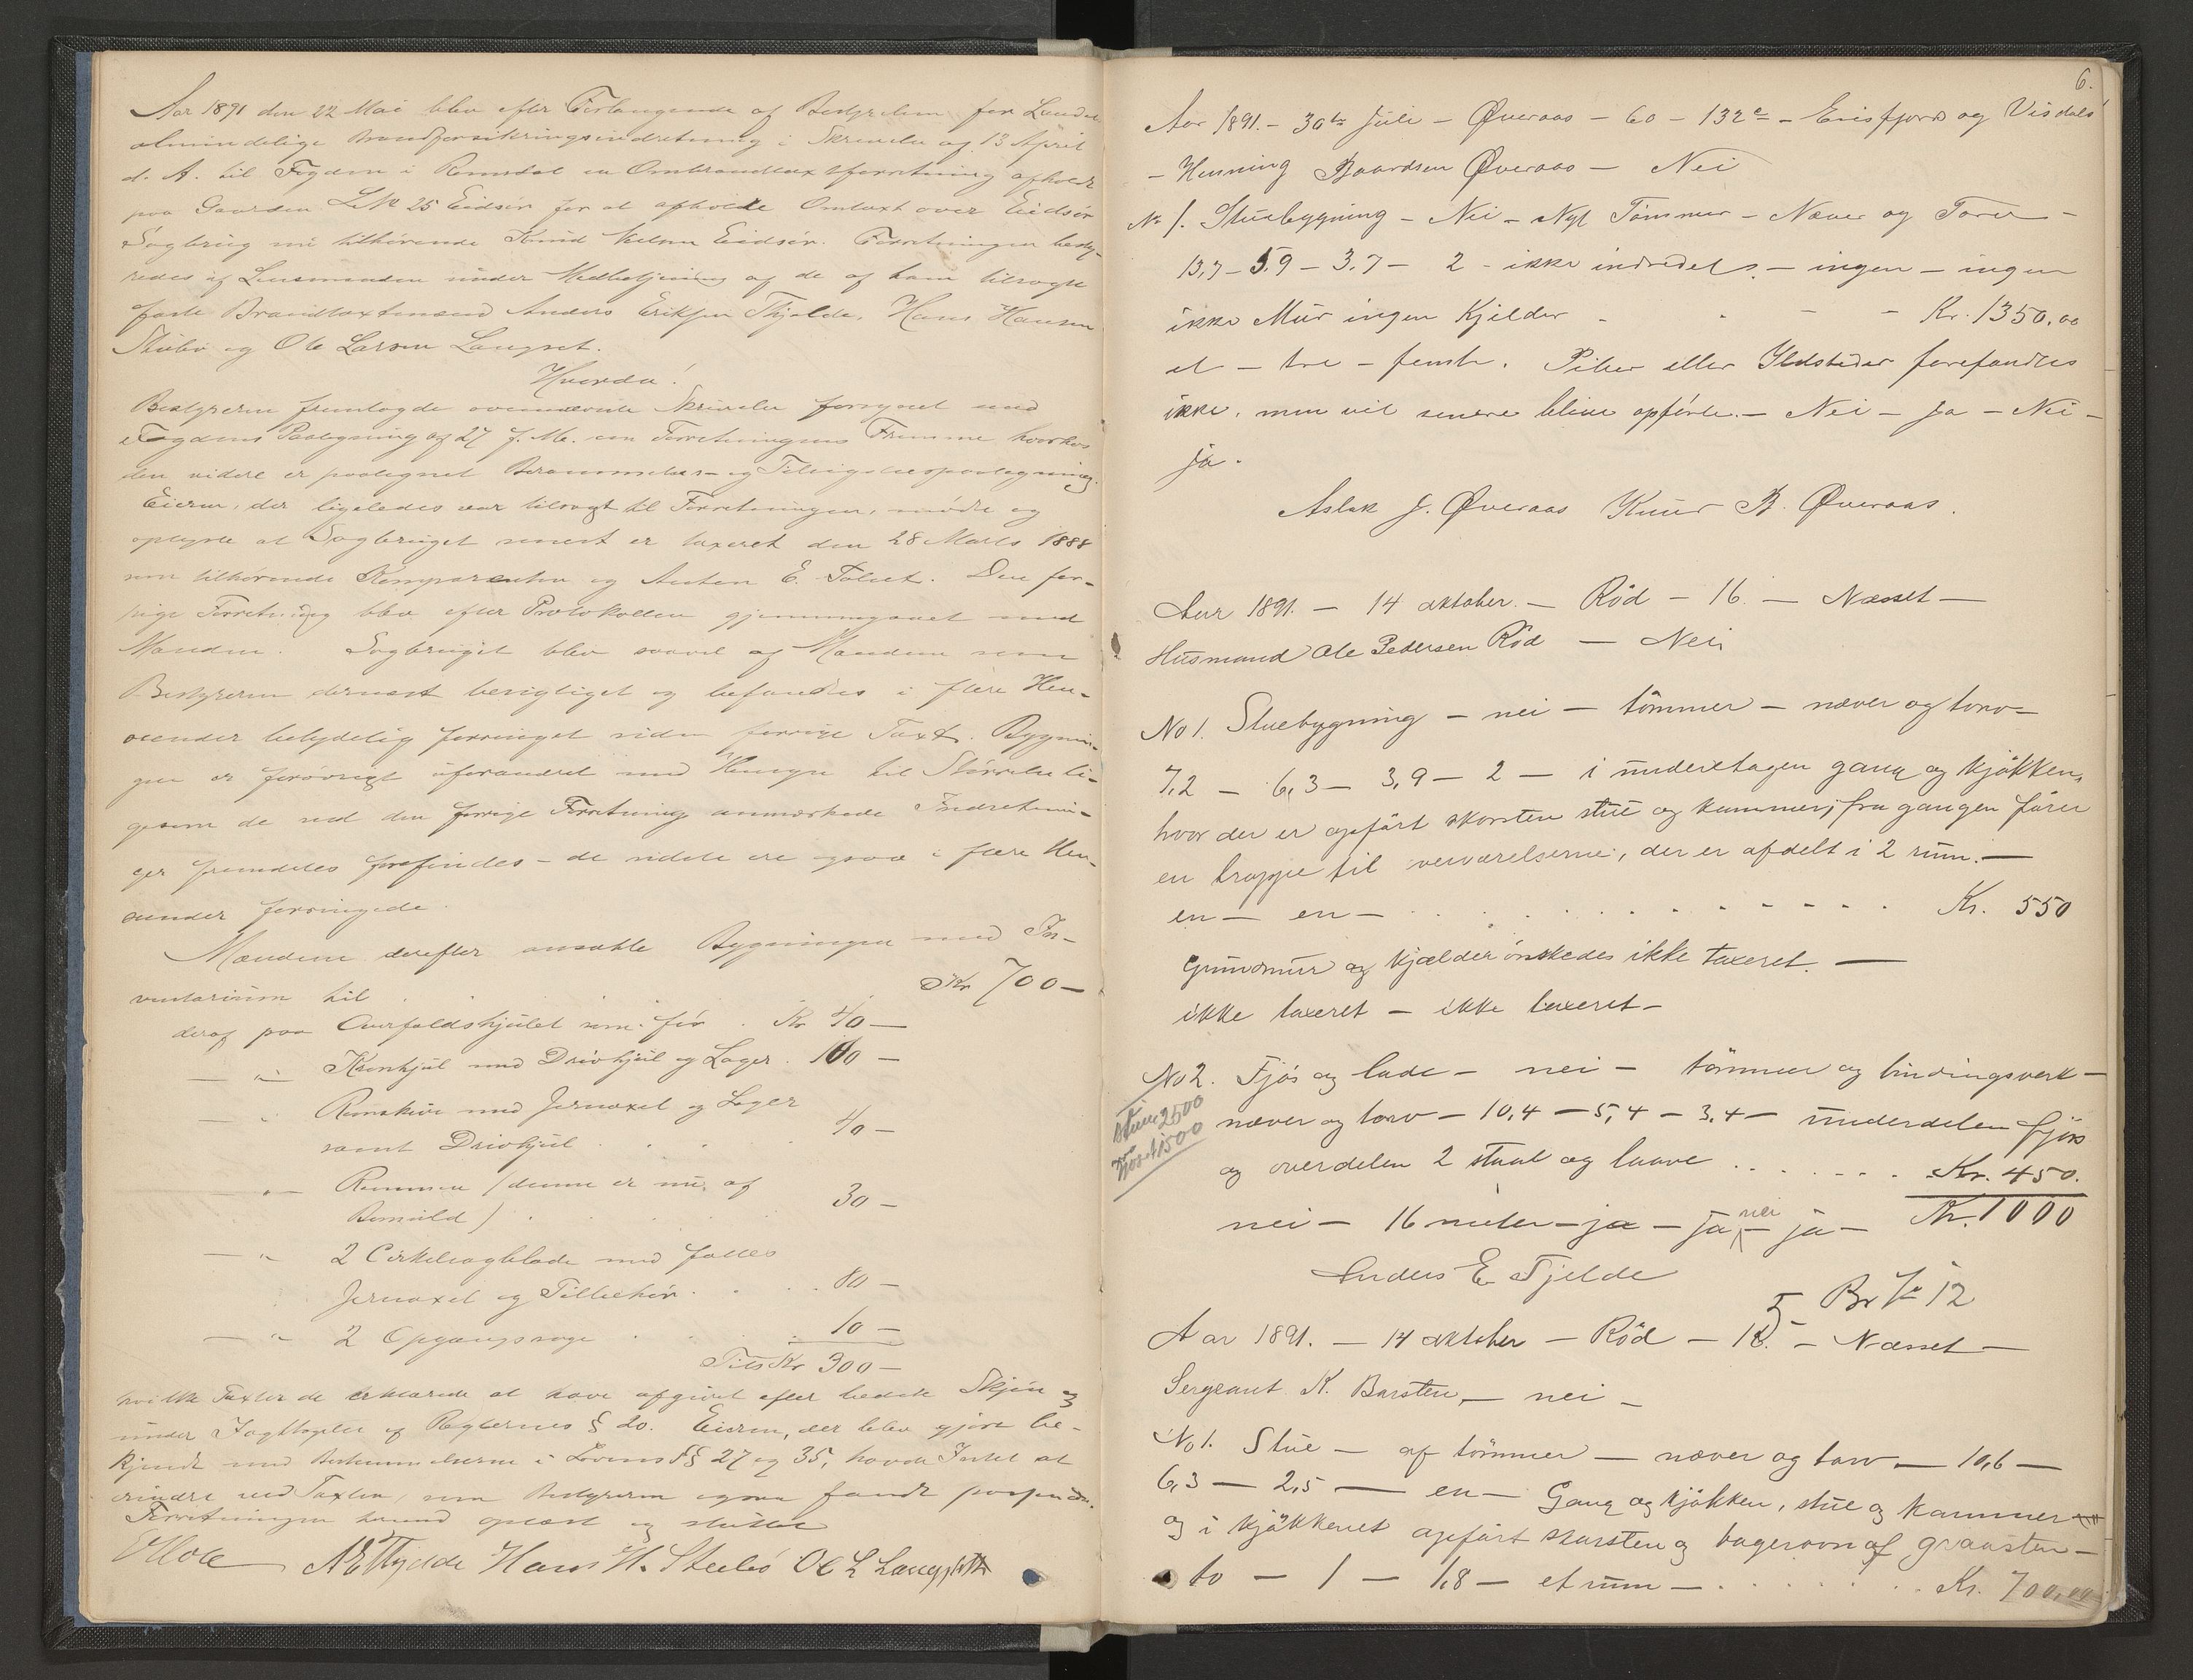 Aar 1891 den 22 Mai blev efter Forlangende af Bestyrelsen for Landets
almindelige Brandforsikringsindretning i Skrivelse af 13 April
d. A. til Fogden i Romsdal en Ombrandtaxtforretning afholdt
paa Gaarden LNo 25 Eidsør for at afholde Omtaxt over Eidsør
Sagbrug nu tilhørende Knud Nelsen Eidsør. Forretningen besty-
redes af Lensmanden under Medbetjening af de af ham tilsagte
faste Brandtaxtmænd Anders Eriksen Tfjelde, Hans Hansen
Stubø og Ole Larsen Langset.
Hvorda!
Bestyreren fremlagde ovennævnte Skrivelse forsynet med
Fogdens Paategning af 27 f. M. om Forretningens Fremme hvorhos
den videre er paategnet Berammelses- og Tilsigelsespaategning.
Eieren, der ligeledes var tilsagt til Forretningen, mødte og
oplyste at Sagbruget senest er taxeret den 28 Marts 1888
som tilhørende Komparenten og Anton E. Toluet. Den for-
rige Forretning blev efter Protokollen gjennemgaaet med
Mændene. Sagbruget blev saavel af Mændene som
Bestyreren dernæst besigtiget og befandtes i flere Hen-
seender betydelig forringet siden forrige Taxt. Bygnin-
gen er forøvrigt uforandret med Hensyn til Størrelse li-
gesom de ved den forrige Forretning anmærkede Indretnin-
ger fremdeles forefindes - de sidste ere ogsaa i flere Hen-
seender forringede.
Mændene derefter ansatte Bygningen med In-
ventarium til . . . Kr 700 -
deraf paa Overfaldshjulet som før . Kr 40 -
— " — Kronhjul med Drivhjul og Lager . 100 -
— " Remskive med Jernaxel og Lager
samt Drivhjul . . . 40 -
" — Remmen (denne er nu af
Bomuld) . . . 30 -
— " 2 Cirkelsagblade med fælles
Jernaxel og Tilbehør . . . 80 -
— " 2 Opgangssage . . . 10 -
Tils Kr 300 -
hvilke Taxter de erklærede at have afgivet efter bedste Skjøn og
under Iagttagelse af Reglernes § 20. Eieren, der blev gjort be-
kjendt med Bestemmelserne i Lovens §§ 27 og 35, havde Intet at
erindre ved Taxten, som Bestyreren ogsaa fandt passende.
Forretningen hermed oplæst og sluttet
A E Tfjelde Hans H. Stubø Ole L Langset
6.
Aar 1891. - 30te Juli - Øveraas - 60 - 132 c - Eirisfjord og Visdals
- Henning Baardsen Øveraas - Nei
No 1. Stuebygning - Nei - Nyt Tømmer - Næver og Torv -
13,7 - 5,9 - 3,7 - 2 - ikke indredet - ingen - ingen
ikke Mur ingen Kjelder - - - - Kr. 1350,00
et - tre - femti. Piber eller Ildsteder forefandtes
ikke, men vil senere blive opførte. - Nei - Ja - Nei -
Ja.
Aslak J. Øveraas Knud B. Øveraas.
Aar 1891. - 14 oktober. - Röd - 16. - Næsset -
Husmand Ole Pedersen Röd - Nei
No 1. Stuebygning - nei - tömmer - næver og torv -
7,2 - 6,3 - 3,9 - 2 - i underetagen gang og kjökken,
hvor der er opfört skorsten stue og kammer; fra gangen förer
en trappe til verværelserne, der er afdelt i 2 rum. -
en - en - . . . . . . . . . Kr. 550
Grundmur og kjælder önskedes ikke taxeret. -
ikke taxeret - ikke taxeret -
No 2. Fjös og lade - nei - tömmer og bindingsverk -
næver og torv - 10,4 - 5,4 - 3,4 - underdelen fjös
og overdelen 2 staal og laave . . . . . . Kr. 450.
Stuen 2500
Fjöset 1500
nei - 16 meter - ja - ja - nei ja - Kr. 1000
Anders E Tfjelde
5 Br No 12
Aar 1891. - 14 oktober - Röd - 18. - Næsset -
Sergeant K. Barsten, - nei -
No 1. Stue - af tömmer - næver og torv - 10,6 -
6,3 - 2,5 - en - Gang og kjökken, stue og kammer
og i kjökkenet opfört skorsten og bagerovn af graasten -
to - 1 - 1,8 - et rum - . . . . . . Kr. 700,00